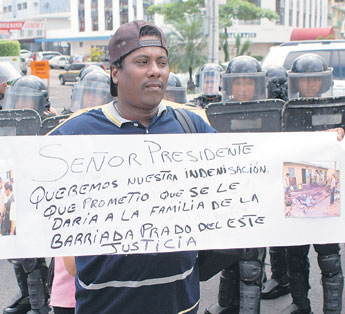 SEÑOR PRESIDENTE
QUEREMOS NUESTRA INDENISACIÓN
QUE PROMETIO QUE SE LE
DARIA A LA FAMILIA DE LA
BARRIADA PRADO DEL ESTE
JUSTICIA